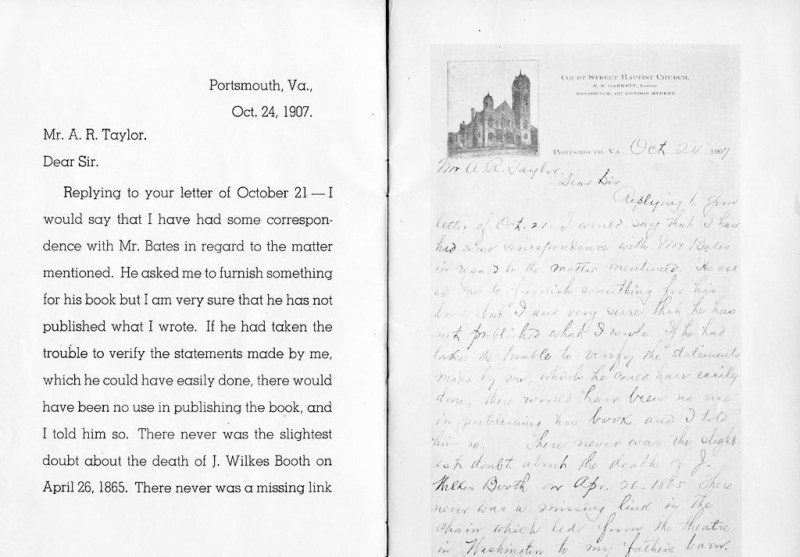 Portsmouth, Va.,
Oct. 24, 1907.
Mr. A. R. Taylor.
Dear Sir.
Replying to your letter of October 21 — I
would say that I have had some correspon-
dence with Mr. Bates in regard to the matter
mentioned. He asked me to furnish something
for his book but I am very sure that he has not
published what I wrote. If he had taken the
trouble to verify the statements made by me,
which he could have easily done, there would
have been no use in publishing the book, and
I told him so. There never was the slightest
doubt about the death of J. Wilkes Booth on
April 26, 1865. There never was a missing link
COURT STREET BAPTIST CHURCH.
PASTOR
RESIDENCE, LONDON STREET.
PORTSMOUTH, VA. Oct. 24 1907
Mr. A. R. Taylor.
Dear Sir
Replying to your
letter of Oct. 21 I would say that I have
had some correspondence with Mr Bates
in regard to the matter mentioned. He ask
ed me to furnish something for his
book but I am very sure that he has
not published what I wrote. If he had
taken the trouble to verify the statements
made by me, which he could have easily
done, there would have been no use
in publishing his book and I told
him so. There never was the slight
est doubt about the death of J.
Wilkes Booth on Apr. 26. 1865 There
never was a missing link in the
chain which led from the theatre
in Washington to my fathers barn.